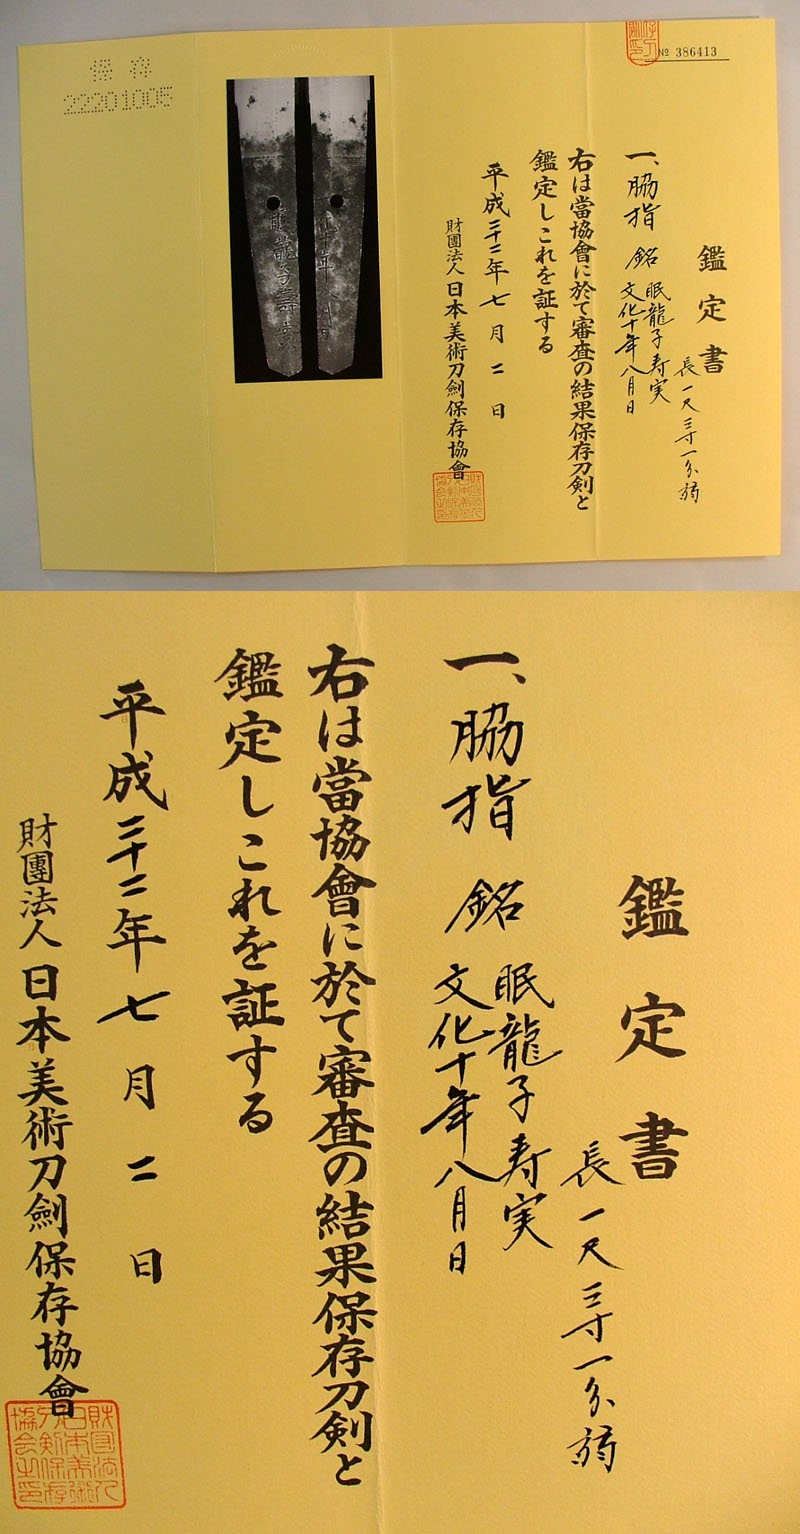 № 386413
鑑定書
長一尺三寸一分弱
一、脇指 銘 眠龍子寿実
文化十年八月日
右は當協會に於て審査の結果保存刀剣と
鑑定しこれを証する
平成二十二年七月二日
財團法人日本美術刀劍保存協會
保存
22201005
鑑定書
長一尺三寸一分弱
一、脇指 銘 眠龍子寿実
文化十年八月日
右は當協會に於て審査の結果保存刀剣と
鑑定しこれを証する
平成二十二年七月二日
財團法人日本美術刀劍保存協會